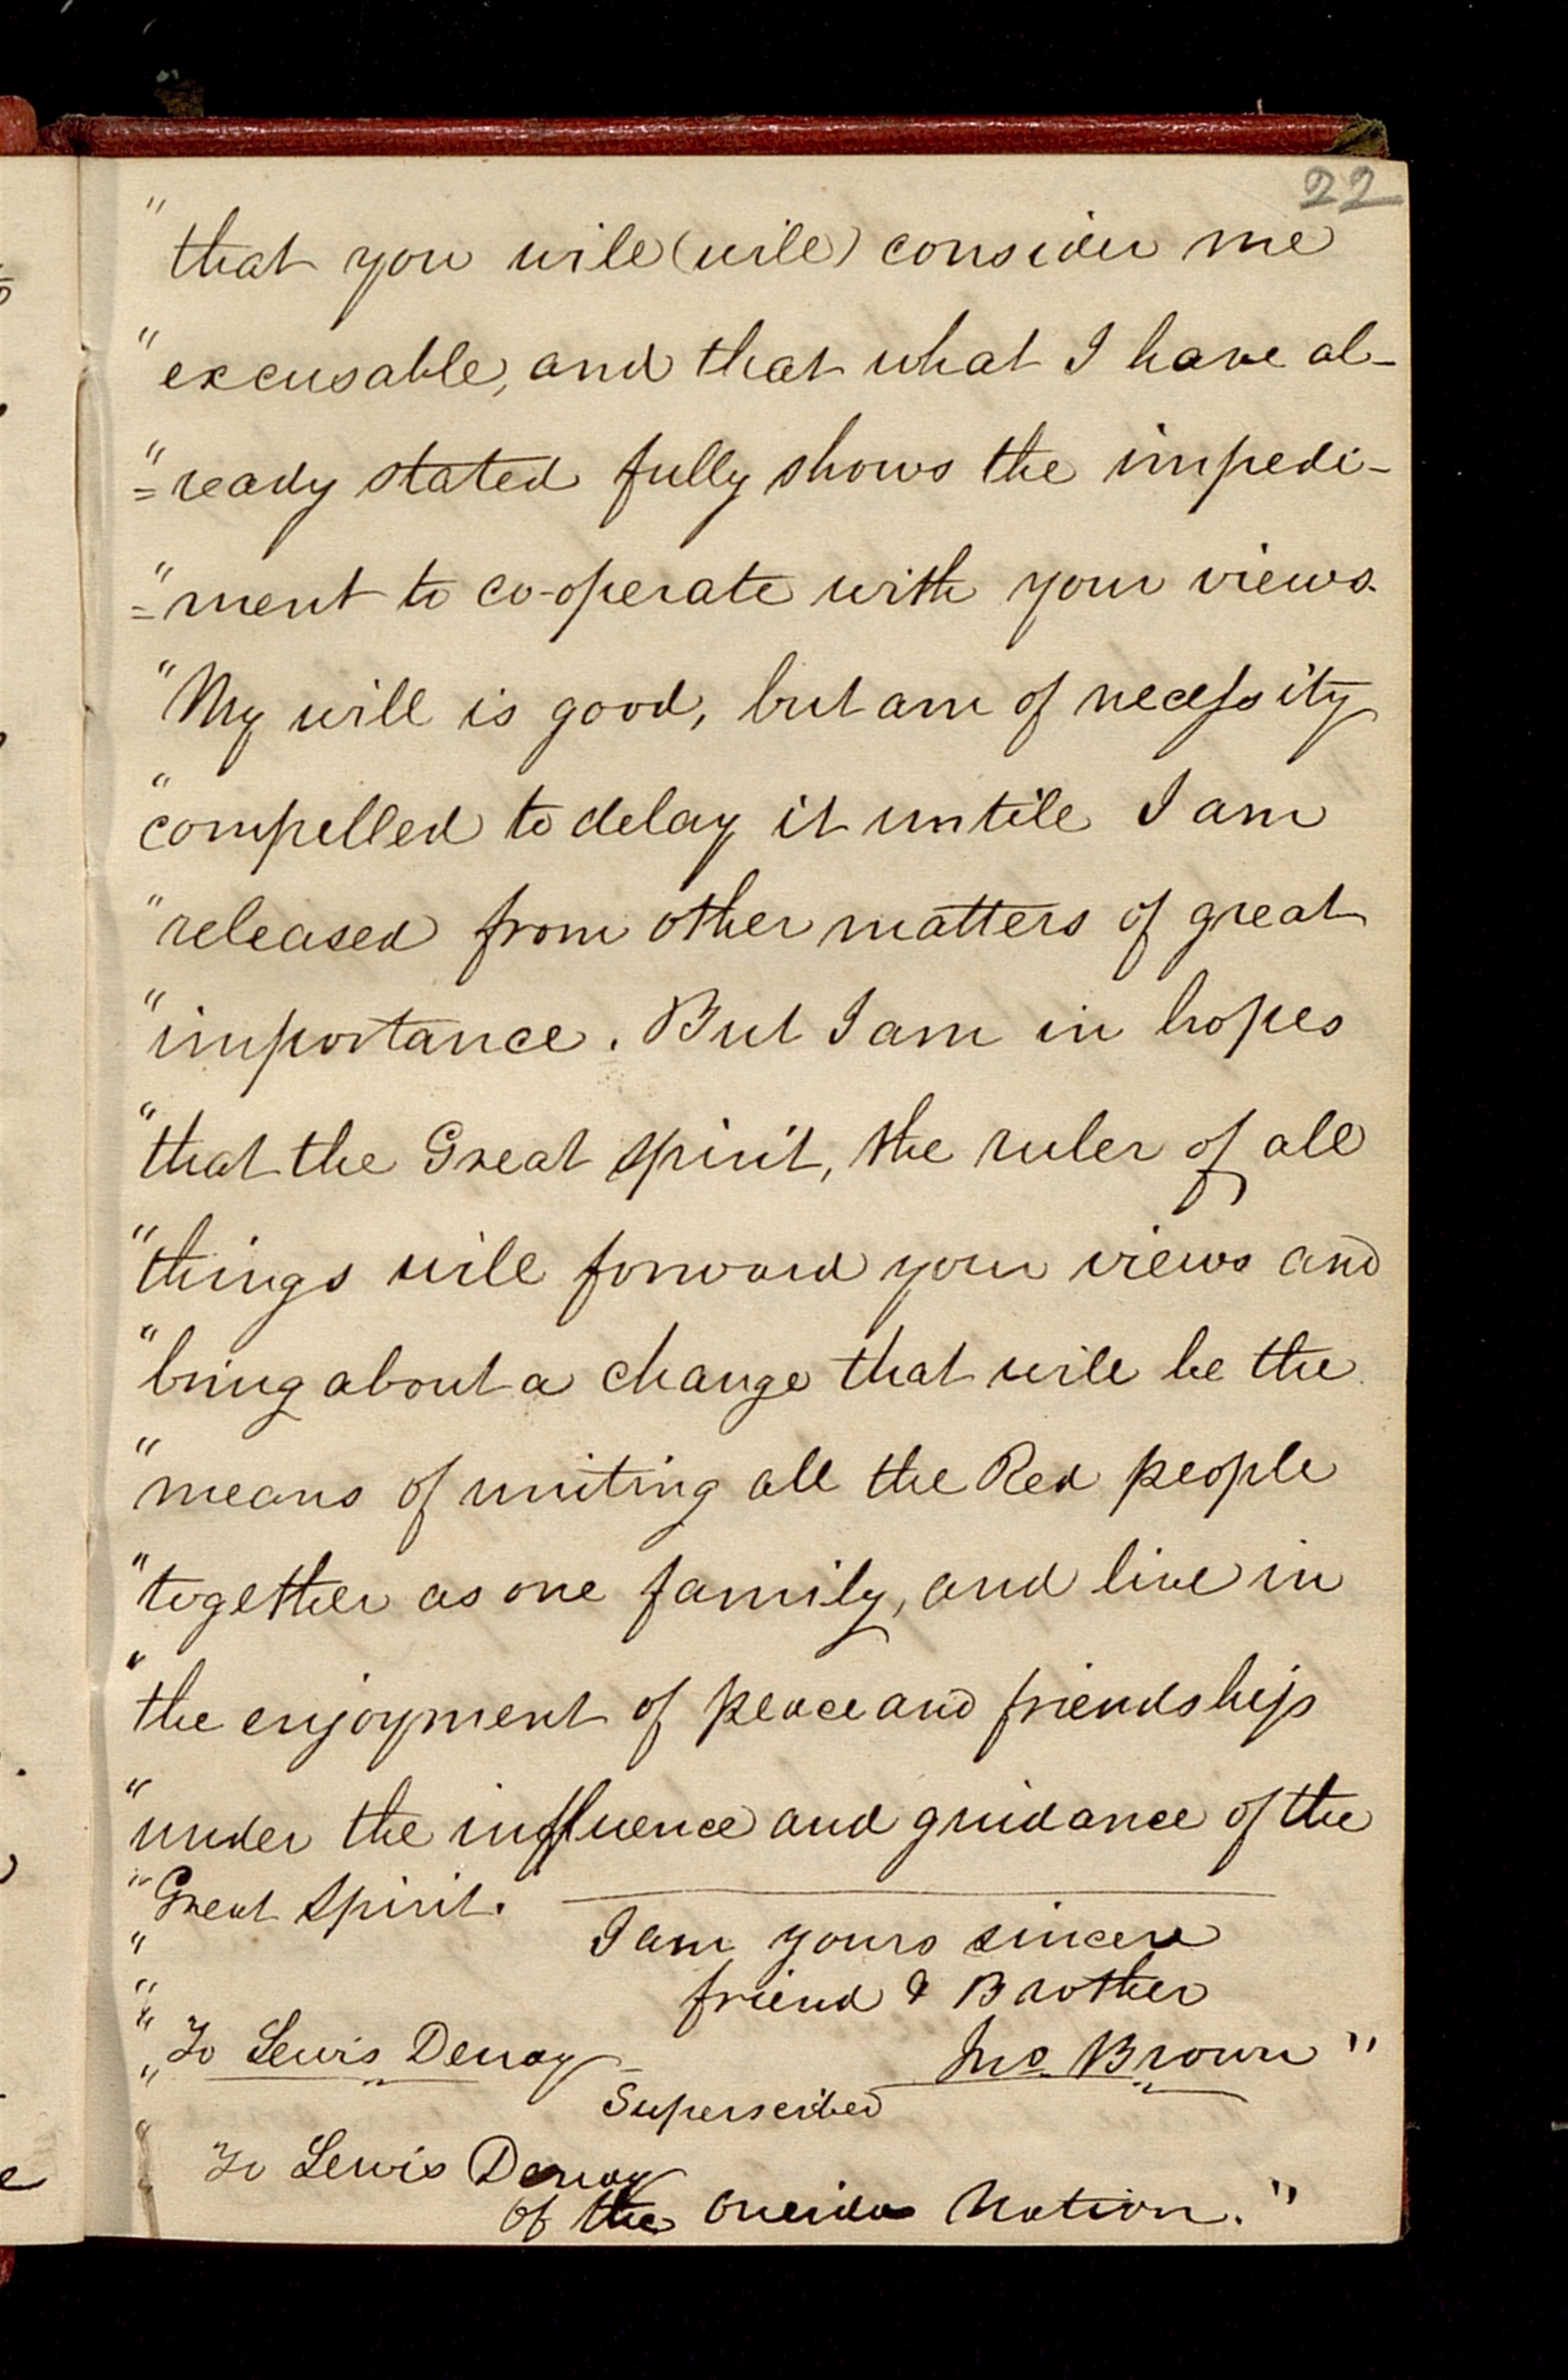 22
" that you will (will) consider me
" excusable, and that what I have al-
" =ready stated fully shows the impedi-
" =ment to co-operate with your views.
" My will is good, but am of necessity
" compelled to delay it untill I am
" released from other matters of great
" importance. But I am in hopes
" that the Great Spirit, the ruler of all
" things will forward your views and
" bring about a change that will be the
" means of uniting all the Red people
" together as one family, and live in
" the enjoyment of peace and friendship
" under the influence and guidance of the
" Great Spirit.
" I am yours sincere
" friend & Brother
" To Lewis Denay Jno. Brown "
" Superscribed
" To Lewis Denay
of the Oneida Nation. "